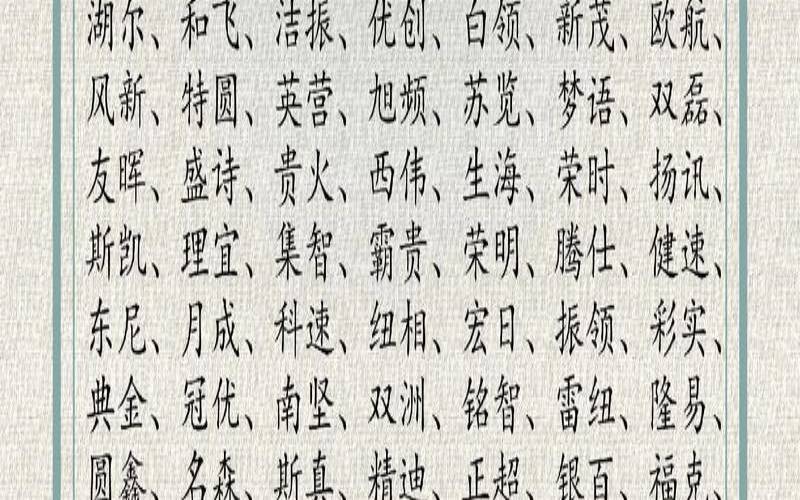 湖尔、和飞、洁振、优创、白领、新茂、欧航、
风新、特圆、英营、旭频、苏览、梦语、双磊、
友晖、盛诗、贵火、西伟、生海、荣时、扬讯、
斯凯、理宜、集智、霸贵、荣明、腾仕、健速、
东尼、月成、科速、纽相、宏日、振领、彩实、
典金、冠优、南坚、双洲、铭智、雷纽、隆易、
圆鑫、名森、斯真、精迪、正超、银百、福克、